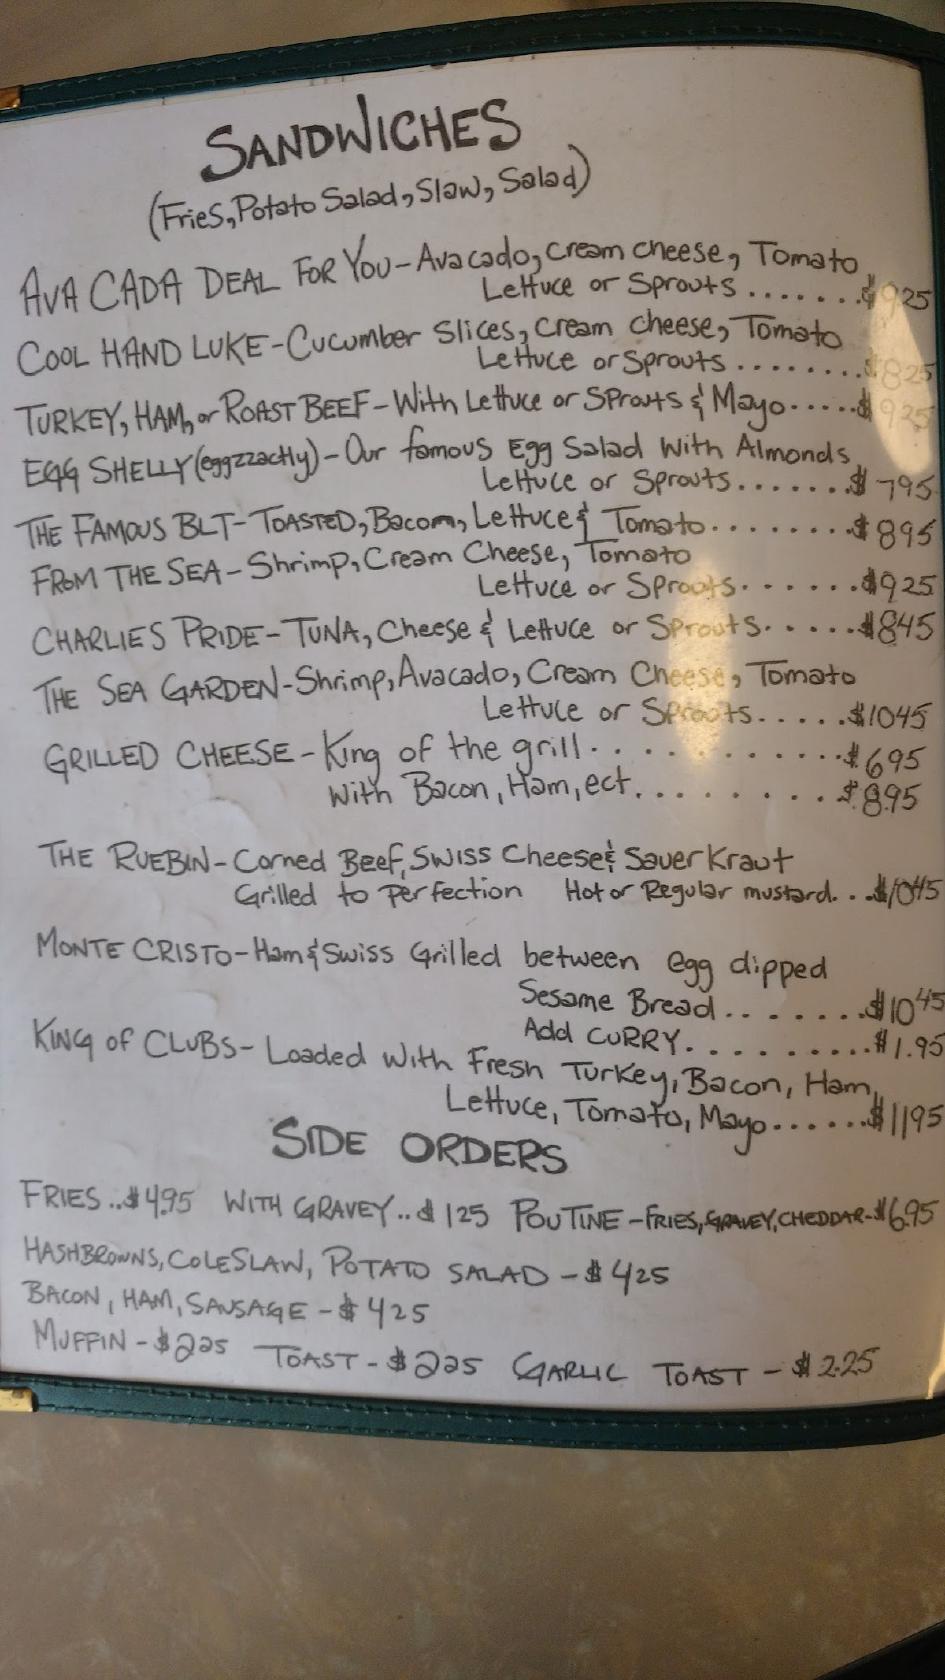 SANDWICHES
(Fries, Potato Salad, Slaw, Salad)
AVA CADA DEAL FOR YOU - Avacado, cream cheese, Tomato
Lettuce or Sprouts ....... $925
COOL HAND LUKE - Cucumber Slices, cream cheese, Tomato
Lettuce or Sprouts ........ $825
TURKEY, HAM, or ROAST BEEF - With Lettuce or Sprouts & Mayo ..... $925
EGG SHELLY (eggzzactly) - Our famous Egg Salad With Almonds
Lettuce or Sprouts ....... $795
THE FAMOUS BLT - TOASTED, Bacom, Lettuce & Tomato ........ $895
FROM THE SEA - Shrimp, Cream Cheese, Tomato
Lettuce or Sproots ...... $925
CHARLIES PRIDE - TUNA, Cheese & Lettuce or Sprouts ..... $845
THE SEA GARDEN - Shrimp, Avacado, Cream Cheese, Tomato
Lettuce or Sprouts ..... $1045
GRILLED CHEESE - King of the grill ........... $695
With Bacon, Ham, ect. ........ $8.95
THE RUEBIN - Corned Beef, Swiss Cheese & Sauer Kraut
Grilled to perfection Hot or Regular mustard... $1045
MONTE CRISTO - Ham & Swiss Grilled between egg dipped
Sesame Bread ....... $1045
Add CURRY .......... $1.95
KING of CLUBS - Loaded With Fresh Turkey, Bacon, Ham,
Lettuce, Tomato, Mayo ...... $1195
SIDE ORDERS
FRIES .. $4.95 WITH GRAVEY .. $125 POUTINE - FRIES, GRAVEY, CHEDDAR - $6.95
HASHBROWNS, COLESLAW, POTATO SALAD - $425
BACON, HAM, SAUSAGE - $425
MUFFIN - $225 TOAST - $225 GARLIC TOAST - $2.25